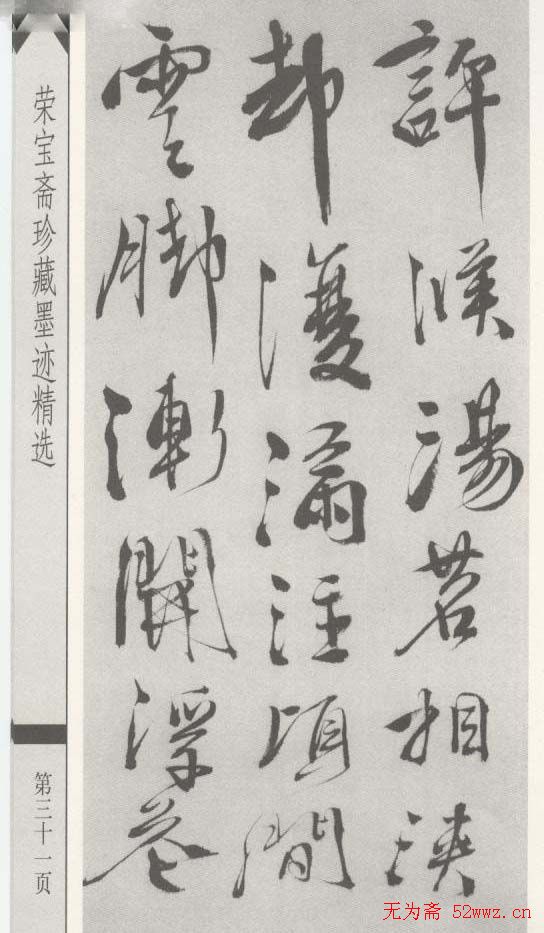 許候湯茗相浹
却復滿注頃間
雲脚漸開浮花
荣宝斋珍藏墨迹精选
第三十一页
无为斋 52wwz.cn